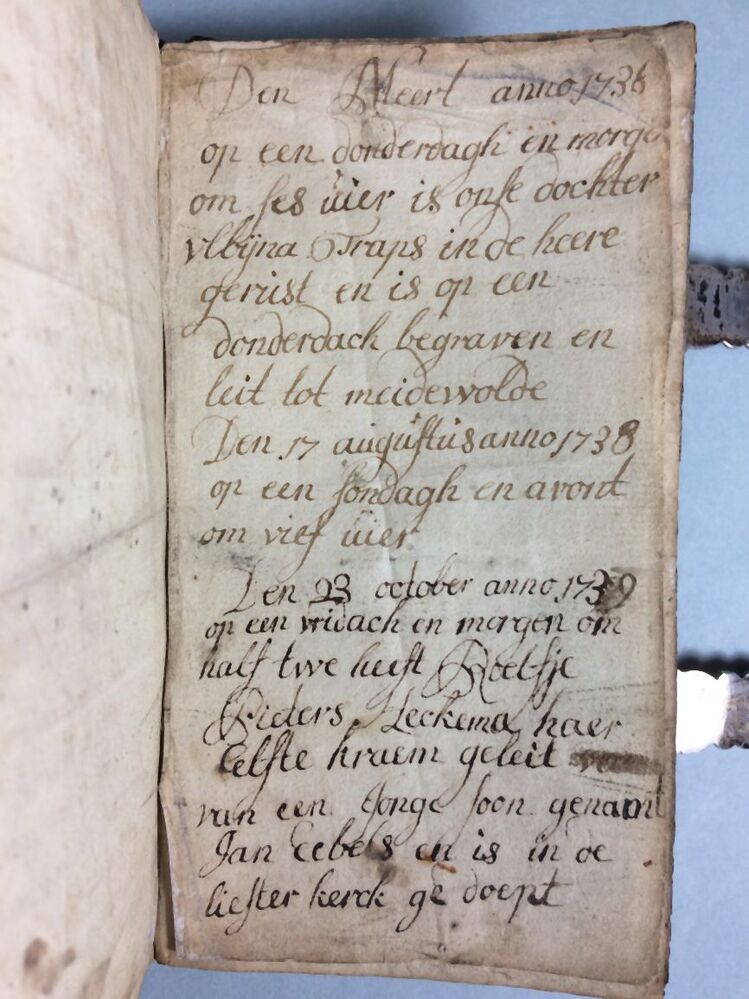 Den Meert anno 1738
op een donderdagh en morge
om ses üier is onse dochter
Traps in de heere
gerüst en is op een
donderdach begraven en
leit tot meidewolde
Den 17 augüstüs anno 1738
op een sondagh en avont
om vief üier
Den 23 october anno 1739
op een vridach en morgen om
half twe heeft Roelfje
Pieters Leckema haer
Elfste kraem geleit
van een Jonge soon genamt
Jan Eebels en is in de
liester kerck ge doept